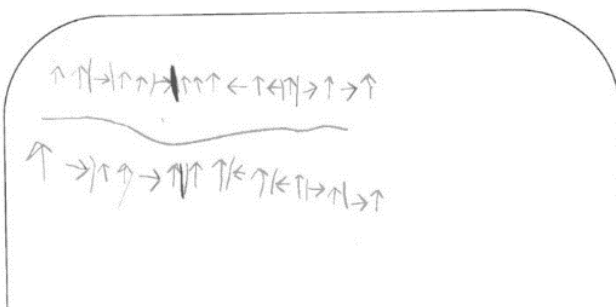 ↑ ↑|→|↑ ↑|→|↑↑↑ ← ↑←|↑|→ ↑ → ↑
↑ →|↑ ↑ → ↑|↑ ↑|← ↑|← ↑|→ ↑|→ ↑